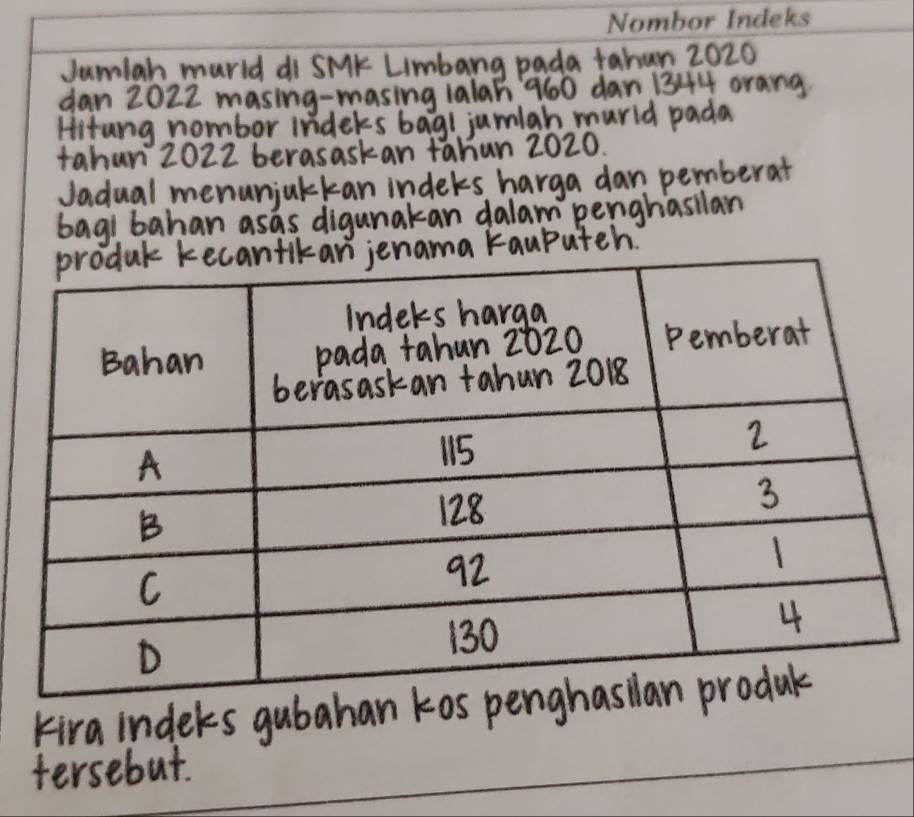 Nombor Indeks
Jumlah murid di SMK Limbang pada tahun 2020
dan 2022 masing-masing ialah 960 dan 1344 orang.
Hitung nombor indeks bagi jumlah murid pada
tahun 2022 berasaskan tahun 2020.
Jadual menunjukkan indeks harga dan pemberat
bagi bahan asas digunakan dalam penghasilan
produk kecantikan jenama KauPuteh.
Bahan
Indeks harga
pada tahun 2020
berasaskan tahun 2018
Pemberat
A 115 2
B 128 3
C 92 1
D 130 4
Kira indeks gubahan kos penghasilan produk
tersebut.